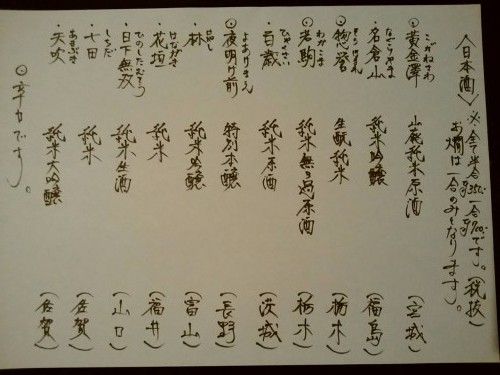 〈日本酒〉 ※全て半合350-一合700-です。(税抜)
お燗は一合のみとなります。
⦿黄金澤 山廃純米原酒 (宮城)
こがねさわ
・名倉山 純米吟醸 (福島)
なぐらやま
⦿惣誉 生酛純米 (栃木)
そうほまれ
⦿若駒 純米無ろ過原酒 (栃木)
わかこま
・百歳 純米原酒 (茨城)
ひゃくさい
⦿夜明け前 特別本醸 (長野)
よあけまえ
・林 純米吟醸 (富山)
はやし
・花垣 純米 (福井)
はながき
・日下無双 純米生酒 (山口)
ひのしたむそう
・七田 純米 (佐賀)
しちだ
・天吹 純米大吟醸 (佐賀)
あまぶき
⦿辛口です。